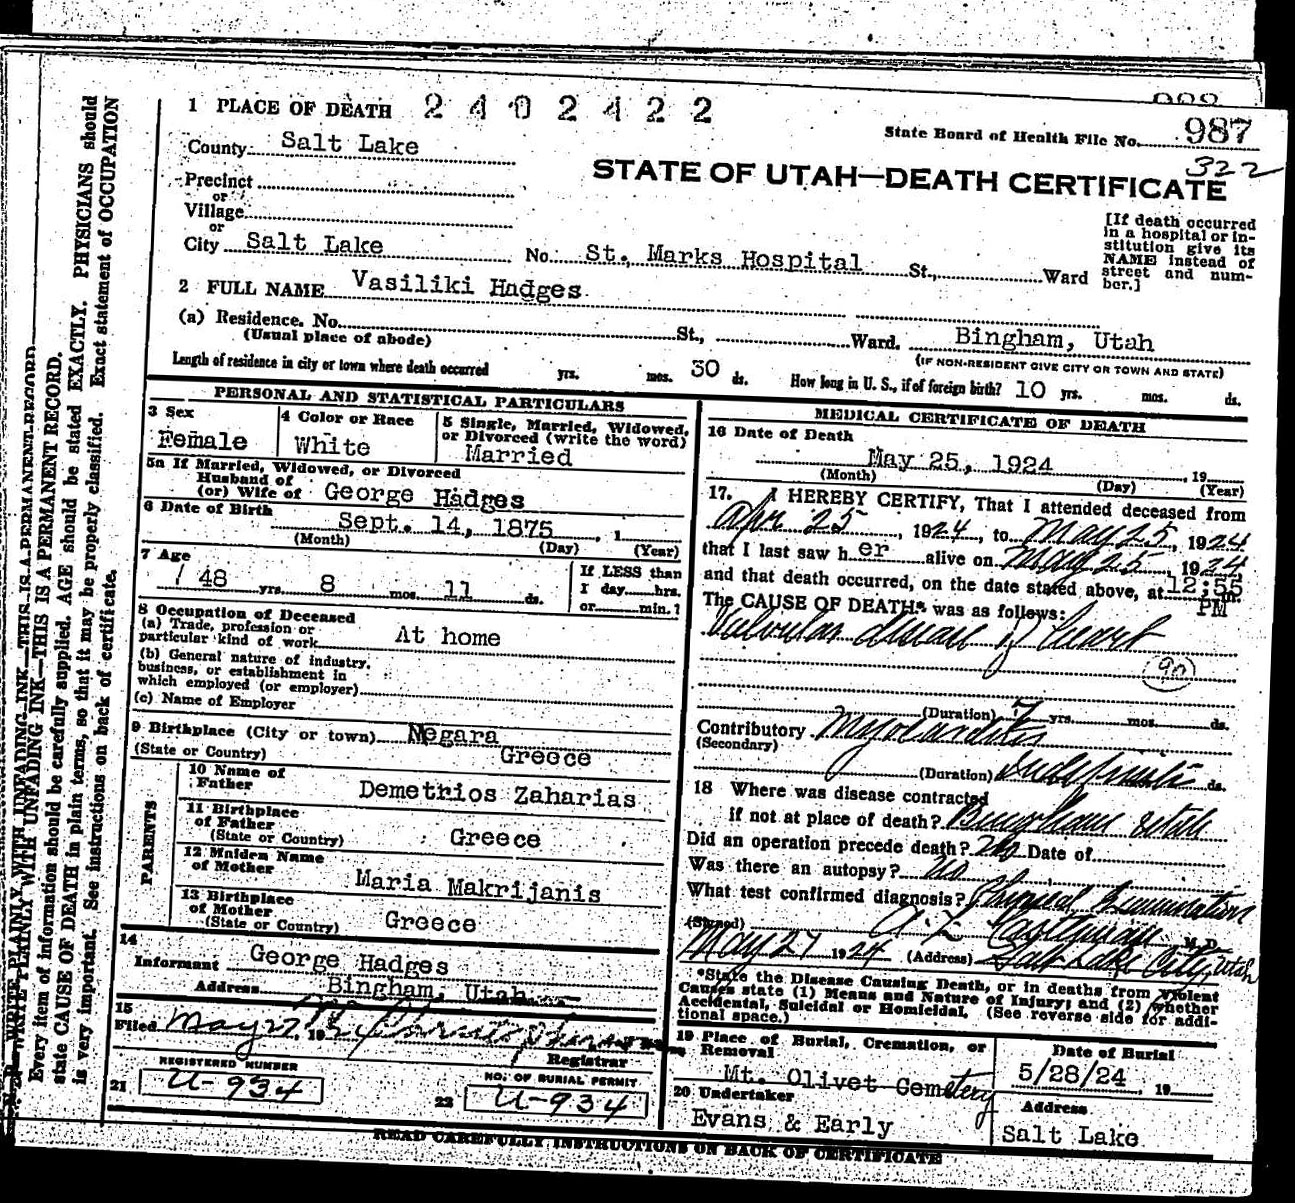 988
1 PLACE OF DEATH 2402422
State Board of Health File No. 987
County Salt Lake
322
STATE OF UTAH—DEATH CERTIFICATE
Precinct
or
Village
or
City Salt Lake No. St. Marks Hospital St., Ward
[If death occurred
in a hospital or in-
stitution give its
NAME instead of
street and num-
ber.]
2 FULL NAME Vasiliki Hadges
(a) Residence. No. St., Ward. Bingham, Utah
(Usual place of abode) (IF NON-RESIDENT GIVE CITY OR TOWN AND STATE)
Length of residence in city or town where death occurred yrs. mos. 30 ds. How long in U. S., if of foreign birth? 10 yrs. mos. ds.
PERSONAL AND STATISTICAL PARTICULARS
3 Sex
Female
4 Color or Race
White
5 Single, Married, Widowed,
or Divorced (write the word)
Married
5a If Married, Widowed, or Divorced
Husband of
(or) Wife of George Hadges
6 Date of Birth
Sept. 14, 1875, 1
(Month) (Day) (Year)
7 Age
48 yrs. 8 mos. 11 ds.
If LESS than
1 day hrs.
or min.?
8 Occupation of Deceased
(a) Trade, profession or
particular kind of work At home
(b) General nature of industry,
business, or establishment in
which employed (or employer)
(c) Name of Employer
9 Birthplace (City or town) Megara
(State or Country) Greece
PARENTS
10 Name of
Father Demetrios Zaharias
11 Birthplace
of Father
(State or Country) Greece
12 Maiden Name
of Mother Maria Makrijanis
13 Birthplace
of Mother
(State or Country) Greece
14
Informant George Hadges
Address Bingham, Utah
15
Filed May 27, 19
Registrar
REGISTERED NUMBER
21 U-934
NO. OF BURIAL PERMIT
22 U-934
MEDICAL CERTIFICATE OF DEATH
16 Date of Death
May 25, 1924, 19
(Month) (Day) (Year)
17. I HEREBY CERTIFY, That I attended deceased from
Apr 25, 1924, to May 25, 1924
that I last saw her alive on May 25, 1924
and that death occurred, on the date stated above, at 12:55 m.
PM
The CAUSE OF DEATH* was as follows:
Valvular disease of heart
(90)
(Duration) 7 yrs. mos. ds.
Contributory Myocarditis
(Secondary)
(Duration) indefinite ds.
18 Where was disease contracted
if not at place of death? Bingham Utah
Did an operation precede death? No Date of
Was there an autopsy? no
What test confirmed diagnosis? Physical Examination
(Signed) A. Z. M.D.
May 27 1924 (Address) Salt Lake City, Utah
*State the Disease Causing Death, or in deaths from Violent
Causes state (1) Means and Nature of Injury; and (2) whether
Accidental, Suicidal or Homicidal. (See reverse side for addi-
tional space.)
19 Place of Burial, Cremation, or
Removal
Mt. Olivet Cemetery
Date of Burial
5/28/24, 19
20 Undertaker
Evans & Early
Address
Salt Lake
READ CAREFULLY INSTRUCTIONS ON BACK OF CERTIFICATE
WRITE PLAINLY WITH UNFADING INK—THIS IS A PERMANENT RECORD.
Every item of information should be carefully supplied. AGE should be stated EXACTLY. PHYSICIANS should
state CAUSE OF DEATH in plain terms, so that it may be properly classified. Exact statement of OCCUPATION
is very important. See instructions on back of certificate.